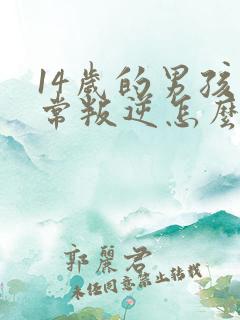 14歲的男孩
常叛逆怎麼
郭麗君
未经同意禁止转载